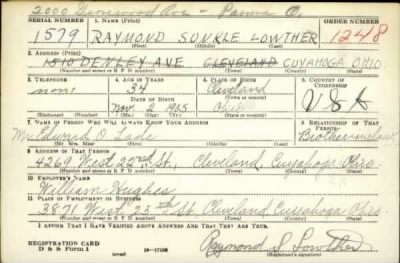 2000 Ave - Parma O.
SERIAL NUMBER 1. NAME (Print) ORDER NUMBER
1579 RAYMOND SUNKLE LOWTHER 1248
(First) (Middle) (Last)
2. ADDRESS (Print)
1510 DENLEY AVE CLEVELAND CUYAHOGA OHIO
(Number and street or R. F. D. number) (Town) (County) (State)
3. TELEPHONE 4. AGE IN YEARS 5. PLACE OF BIRTH 6. COUNTRY OF CITIZENSHIP
none 34 Cleveland U S A
DATE OF BIRTH (Town or county)
Nov 9 1905 Ohio
(Exchange) (Number) (Mo.) (Day) (Yr.) (State or country)
7. NAME OF PERSON WHO WILL ALWAYS KNOW YOUR ADDRESS 8. RELATIONSHIP OF THAT PERSON
Mr. Edward O. Brother-in-law
(Mr., Mrs., Miss) (First) (Middle) (Last)
9. ADDRESS OF THAT PERSON
4269 West 22nd St., Cleveland, Cuyahoga Ohio
(Number and street or R. F. D. number) (Town) (County) (State)
10. EMPLOYER'S NAME
William Hughes
11. PLACE OF EMPLOYMENT OR BUSINESS
3871 West 23rd St, Cleveland Cuyahoga Ohio
(Number and street or R. F. D. number) (Town) (County) (State)
I AFFIRM THAT I HAVE VERIFIED ABOVE ANSWERS AND THAT THEY ARE TRUE.
REGISTRATION CARD
D S S Form 1 (over) Raymond S. Lowther
(Registrant's signature)